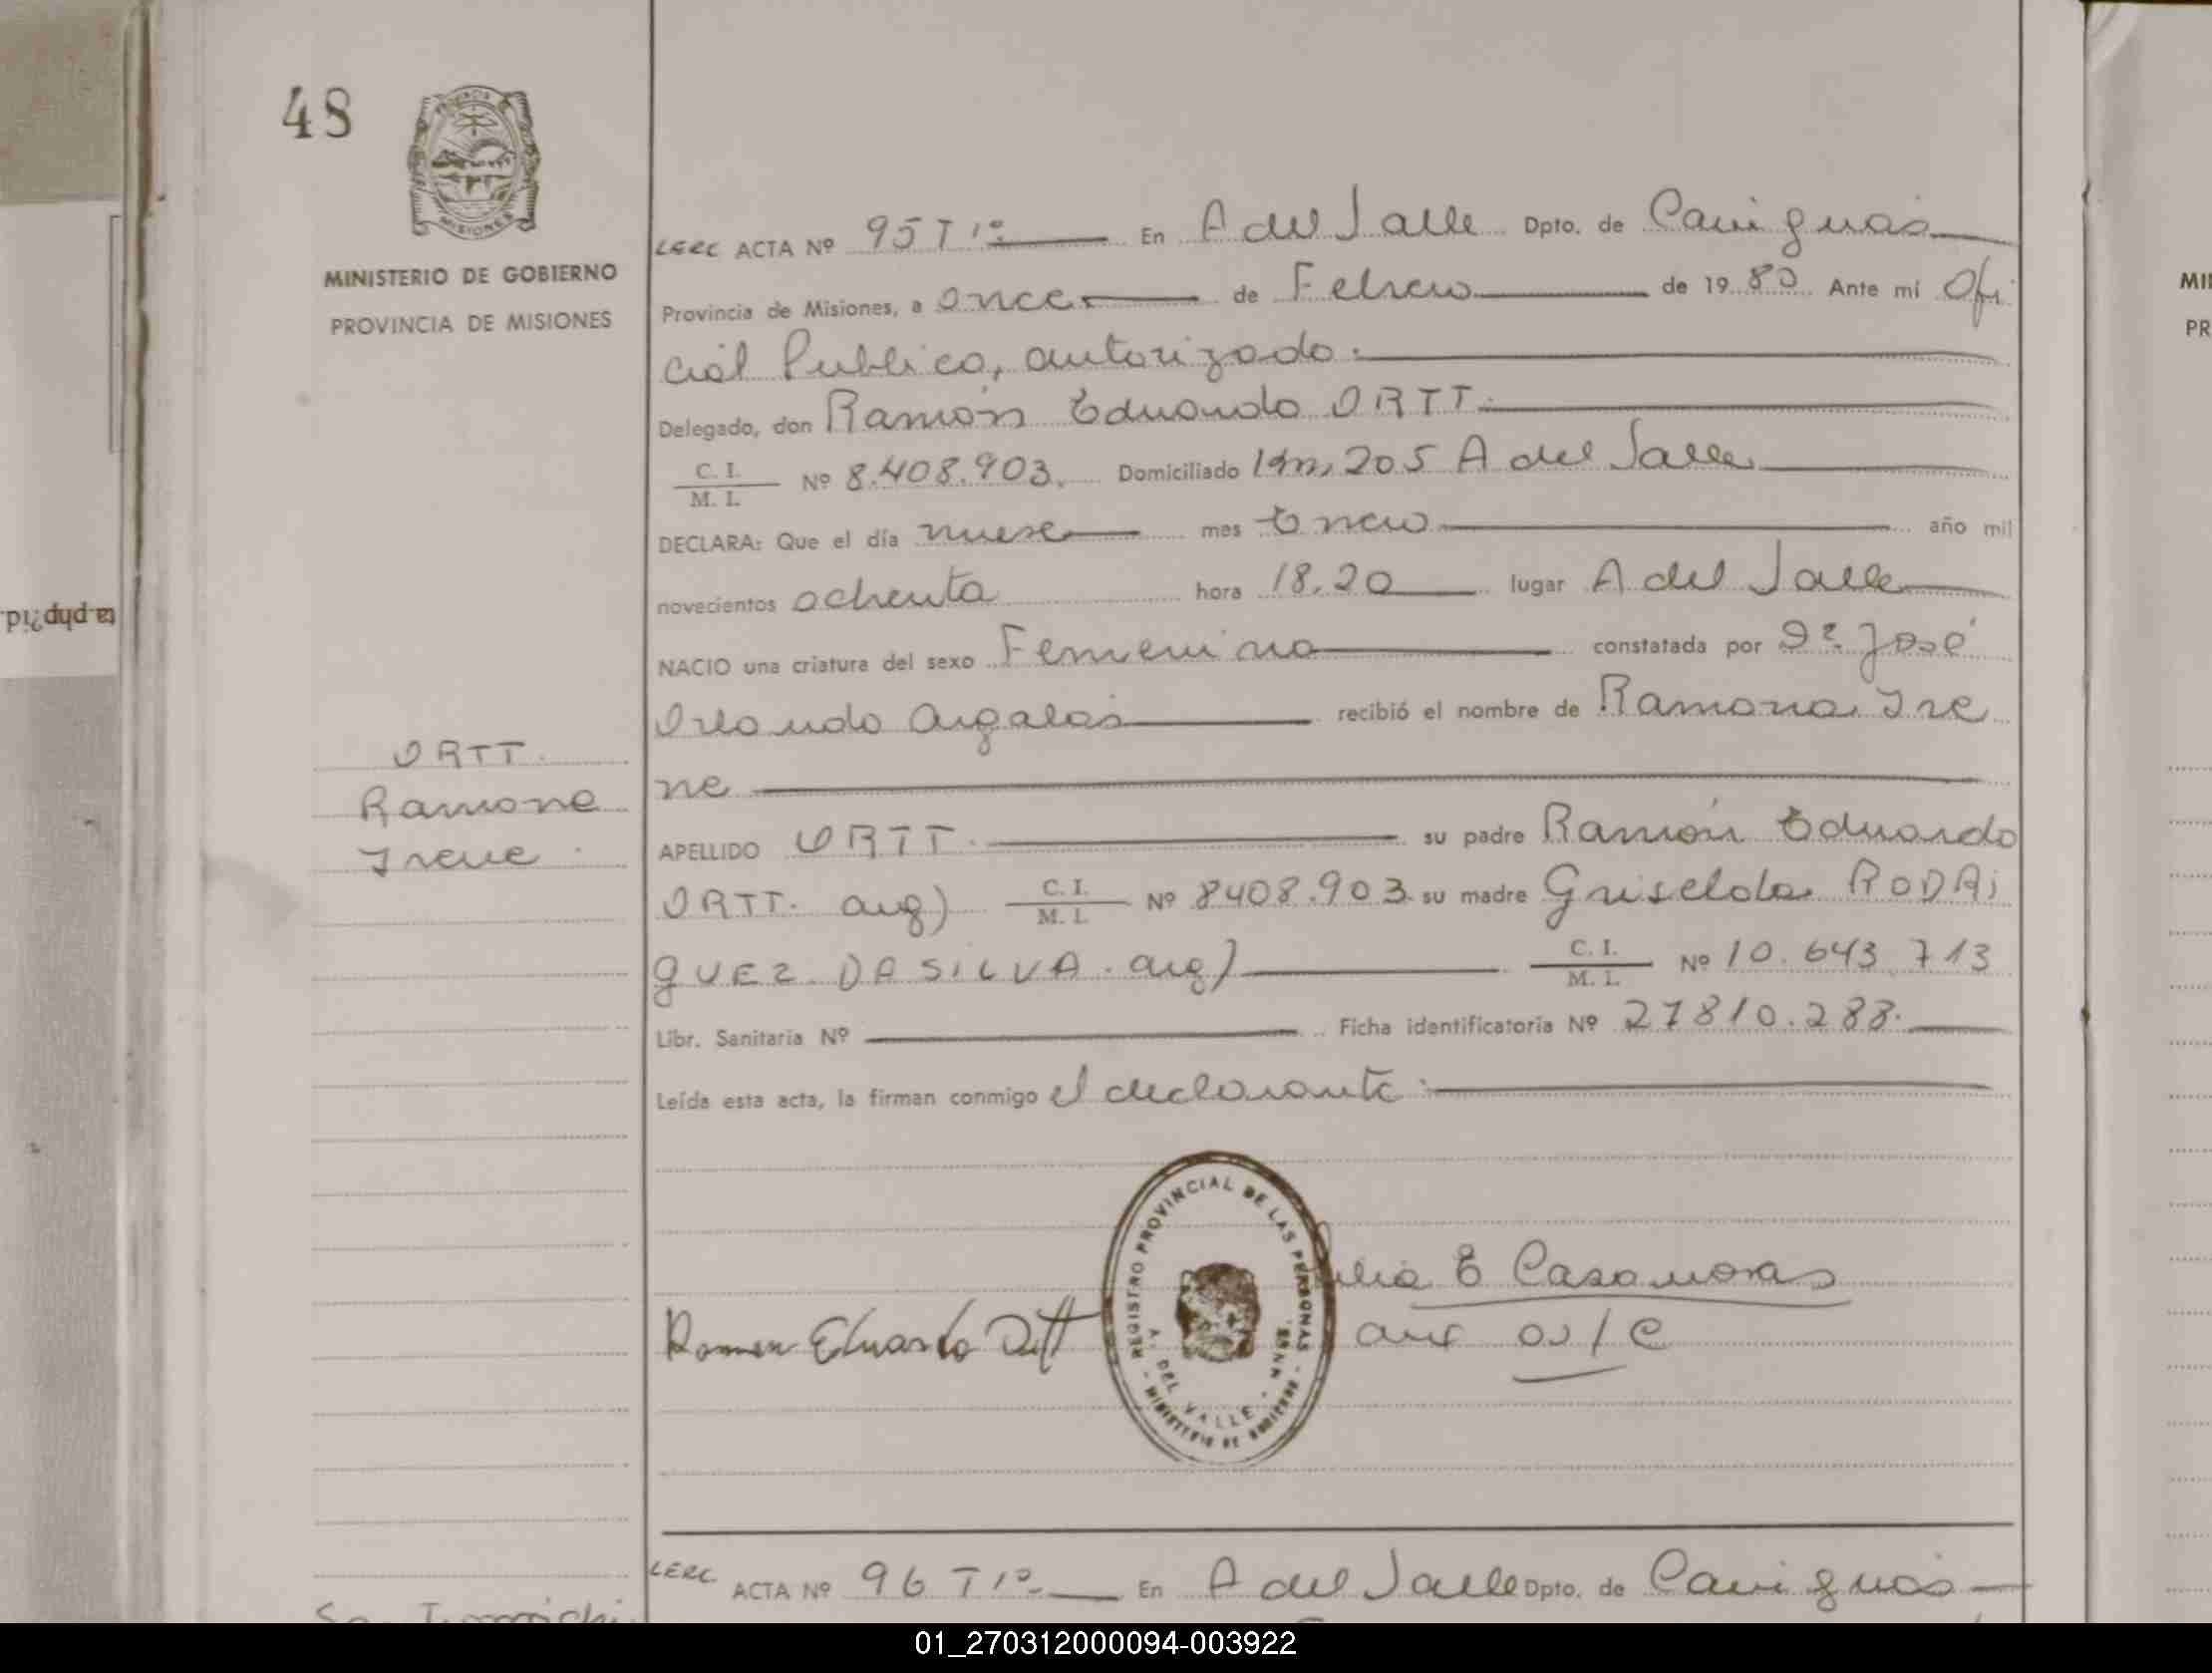 48
MINISTERIO DE GOBIERNO
PROVINCIA DE MISIONES
LERC ACTA Nº 95 Tº 1º En A del Valle Dpto. de Cainguás
Provincia de Misiones, a once de Febrero de 1980 Ante mí Ofi
cial Publico, autorizado.
Delegado, don Ramón Eduardo ORTT.
C. I.
M. I. Nº 8.408.903. Domiciliado Km, 205 A del Valle
DECLARA: Que el día nueve mes Enero año mil
novecientos ochenta hora 18,20 lugar A del Valle
NACIO una criatura del sexo Femenino constatada por Dr. José
Orlando recibió el nombre de Ramona Ire
ne
ORTT.
Ramona
Irene
APELLIDO ORTT. su padre Ramón Eduardo
ORTT. arg) C. I.
M. I. Nº 8408.903. su madre Griselda RODRi
gUEZ DA SILVA. arg) C. I.
M. I. Nº 10.643.713
Libr. Sanitaria Nº Ficha identificatoria Nº 27810.288.
Leída esta acta, la firman conmigo el declarante.
REGISTRO PROVINCIAL DE LAS PERSONAS
A. DEL VALLE
MINISTERIO DE GOBIERNO
E Casanovas
Ramon Eduardo Ortt
LERC ACTA Nº 96 Tº 1º En A del Valle Dpto. de Cainguás
ta.php?id
MI
PR
01_270312000094-003922